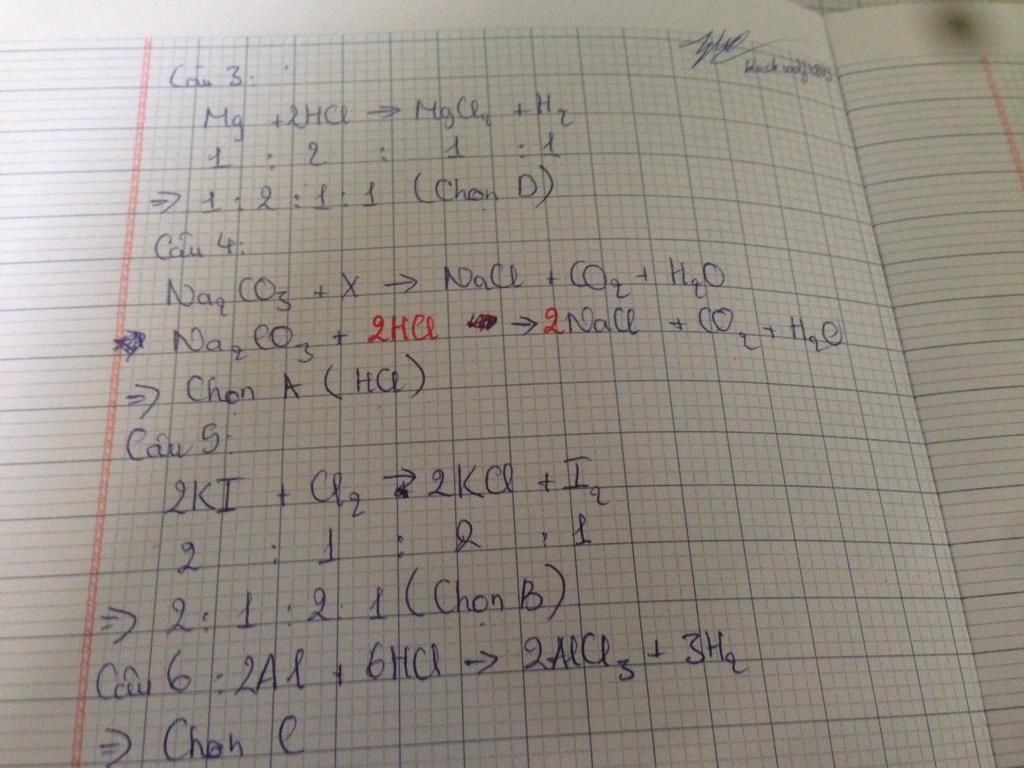 Câu 3:
Mg + 2HCl → MgCl₂ + H₂
1 : 2 : 1 : 1
⇒ 1 : 2 : 1 : 1 (Chọn D)
Câu 4:
Na₂CO₃ + X → NaCl + CO₂ + H₂O
Na₂CO₃ + 2HCl → 2NaCl + CO₂ + H₂O
⇒ Chọn A (HCl)
Câu 5:
2KI + Cl₂ → 2KCl + I₂
2 : 1 : 2 : 1
⇒ 2 : 1 : 2 : 1 (Chọn B)
Câu 6 : 2Al + 6HCl → 2AlCl₃ + 3H₂
⇒ Chọn C